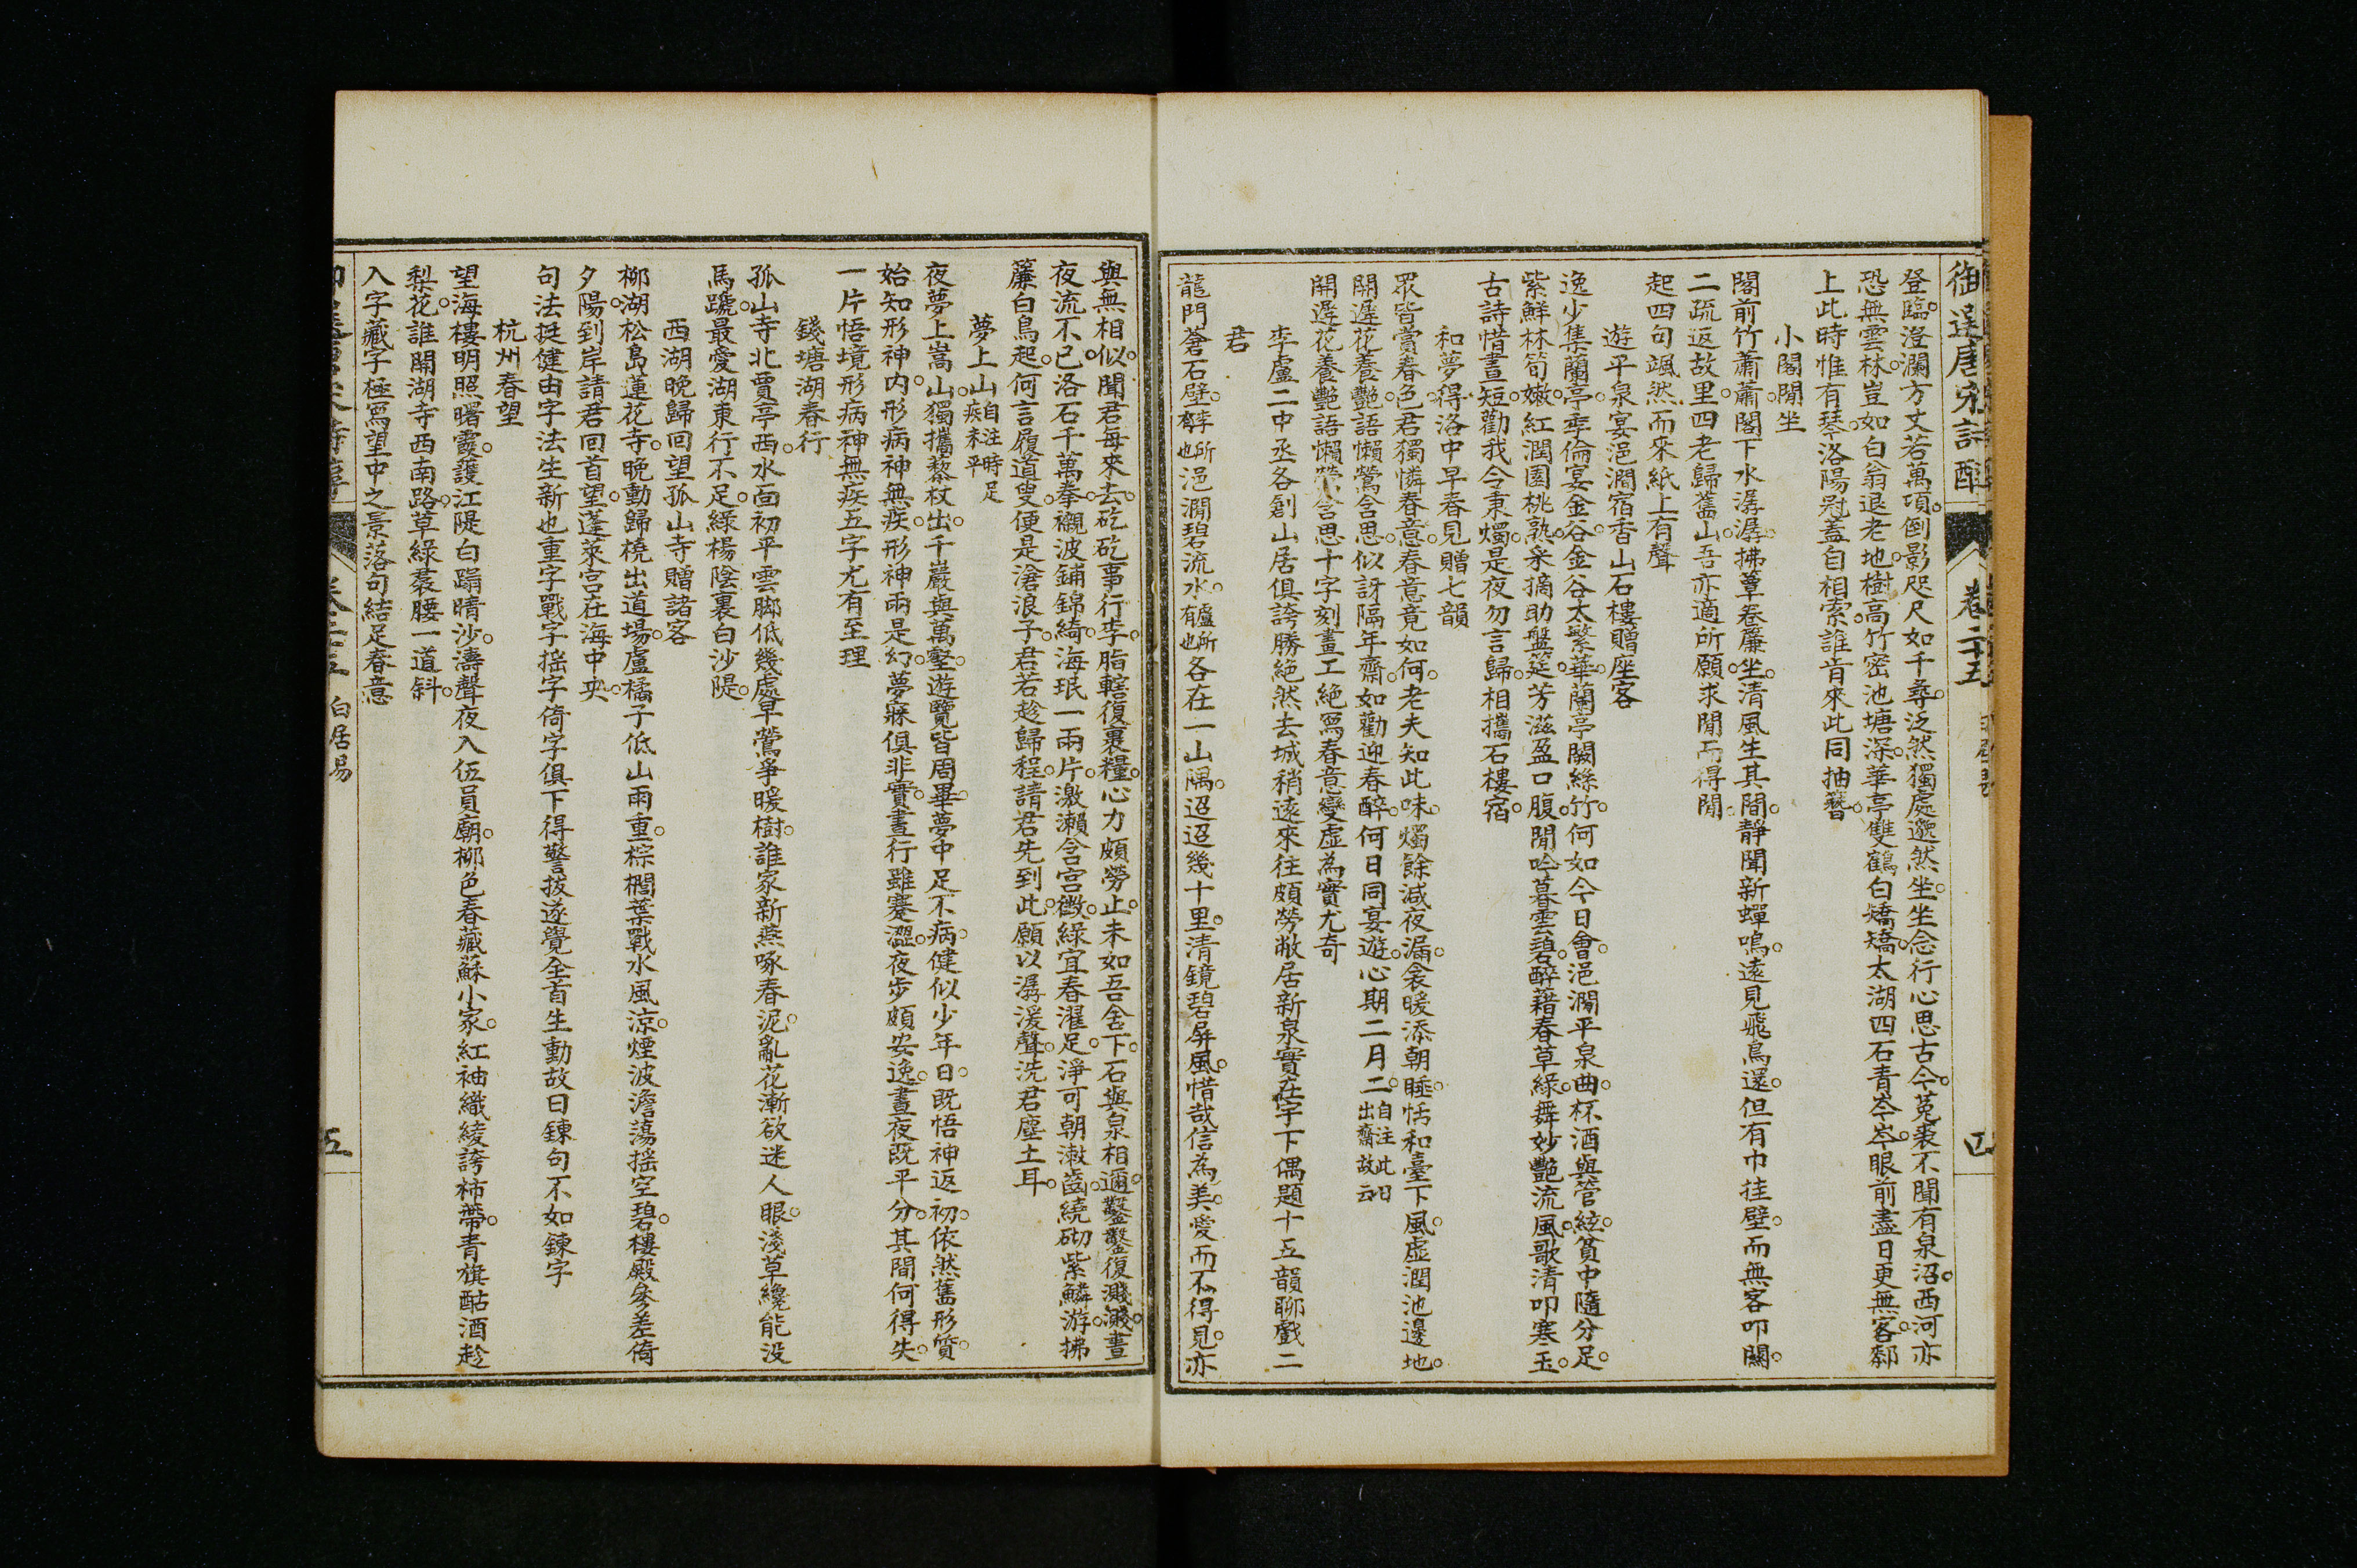 御選唐宋詩醇 卷二十五
登臨澄瀾方丈若萬頃倒影咫尺如千尋泛然獨處邈然坐坐念行心思古今菟裘不聞有泉沼西河亦
恐無雲林豈如白翁退老地樹高竹密池塘深華亭雙鶴白矯矯太湖四石青岑岑眼前盡日更無客䣛
上此時惟有琴洛陽冠蓋自相索誰肯來此同抽簪
小閣閒坐
閣前竹蕭蕭閣下水潺潺拂簟卷簾坐清風生其間靜聞新蟬鳴遠見飛鳥還但有巾挂壁而無客叩關
二疏返故里四老歸舊山吾亦適所願求閒而得閒
起四句颯然而來紙上有聲
遊平泉宴浥澗宿香山石樓贈座客
逸少集蘭亭季倫宴金谷金谷太繁華蘭亭闕絲竹何如今日會浥澗平泉曲杯酒與管絃貧中隨分足
紫鮮林筍嫩紅潤園桃熟采摘助盤筵芳滋盈口腹閒吟暮雲碧醉藉春草綠舞妙艷流風歌清叩寒玉
古詩惜晝短勸我今秉燭是夜勿言歸相攜石樓宿
和夢得洛中早春見贈七韻
眾皆賞春色君獨憐春意春意竟如何老夫知此味燭餘減夜漏衾暖添朝睡恬和臺下風虛潤池邊地
開遲花養艷語懶鶯含思似訝隔年齋如勸迎春醉何日同宴遊心期二月二自注此日出齋故云
開遲花養艷語懶鶯含思十字刻畫工絕寫春意變虛為實尤奇
李盧二中丞各創山居俱誇勝絕然去城稍遠來往頗勞敝居新泉實在宇下偶題十五韻聊戲二
君
龍門蒼石壁李所有也浥澗碧流水盧所有也各在一山隅迢迢幾十里清鏡碧屏風惜哉信為美愛而不得見亦
與無相似聞君每來去矻矻事行李脂轄復裹糧心力頗勞止未如吾舍下石與泉相邇鑿鑿復濺濺晝
夜流不已洛石千萬拳襯波鋪錦綺海珉一兩片激瀨含宮徵綠宜春濯足淨可朝潄齒繞砌紫鱗游拂
簾白鳥起何言履道叟便是滄浪子君若趁歸程請君先到此願以潺湲聲洗君塵土耳
夢上山自注時足疾未平
夜夢上嵩山獨攜藜杖出千巖與萬壑遊覽皆周畢夢中足不病健似少年日既悟神返初依然舊形質
始知形神內形病神無疾形神兩是幻夢寐俱非實晝行雖蹇澀夜步頗安逸晝夜既平分其間何得失
一片悟境形病神無疾五字尤有至理
錢塘湖春行
孤山寺北賈亭西水面初平雲腳低幾處早鶯爭暖樹誰家新燕啄春泥亂花漸欲迷人眼淺草纔能沒
馬蹏最愛湖東行不足綠楊陰裏白沙隄
西湖晚歸回望孤山寺贈諸客
柳湖松島蓮花寺晚動歸橈出道場盧橘子低山雨重棕櫚葉戰水風涼煙波澹蕩搖空碧樓殿參差倚
夕陽到岸請君回首望蓬萊宮在海中央
句法挺健由字法生新也重字戰字搖字倚字俱下得警拔遂覺全首生動故曰鍊句不如鍊字
杭州春望
望海樓明照曙霞護江隄白蹋晴沙濤聲夜入伍員廟柳色春藏蘇小家紅袖織綾誇柿蔕青旗酤酒趁
梨花誰開湖寺西南路草綠裙腰一道斜
入字藏字極寫望中之景落句結足春意
白居易 五